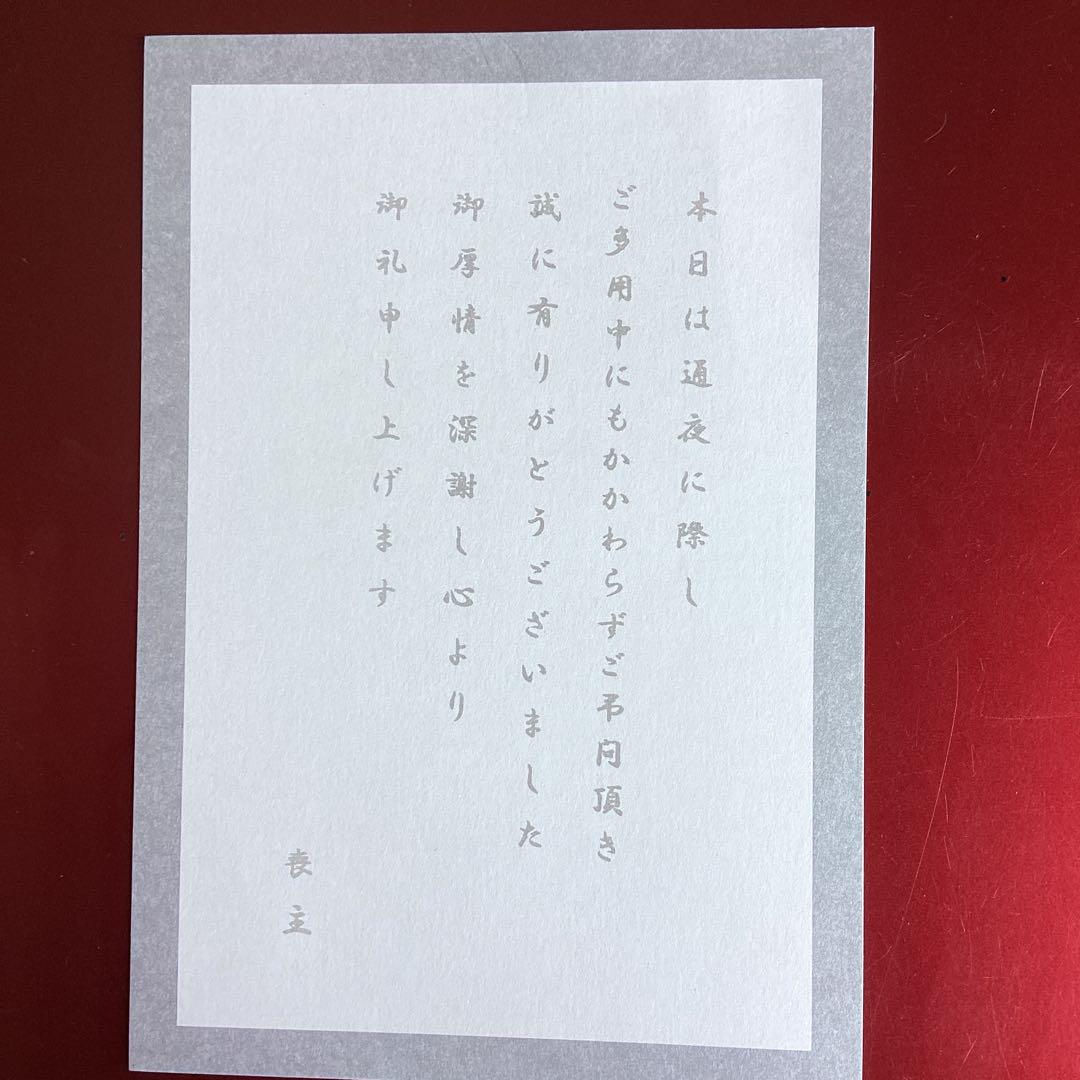 本日は通夜に際し
ご多用中にもかかわらずご弔问頂き
誠に有りがとうございました
御厚情を深謝し心より
御礼申し上げます
喪主